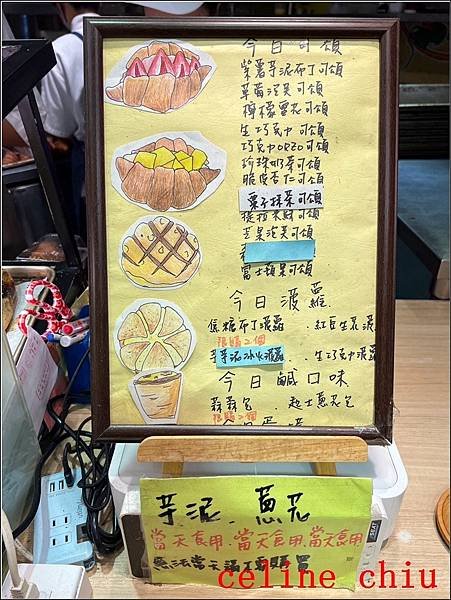 今日可頌
紫薯芋泥布丁可頌
草莓泡芙可頌
檸檬雪花可頌
生巧克力可頌
巧克力OREO可頌
珍珠奶茶可頌
脆皮杏仁可頌
栗子抹茶可頌
提拉米酥可頌
芒果泡芙可頌
富士蘋果可頌
今日菠蘿
焦糖布丁菠蘿 . 紅豆生花菠
限購2個
芋泥冰火菠蘿 . 生巧克力菠蘿
今日鹹口味
蒜蒜包 . 起士蔥花包
限購2個
芋泥、蔥花
當天食用,當天食用,當天食用
無法當天
celine chiu